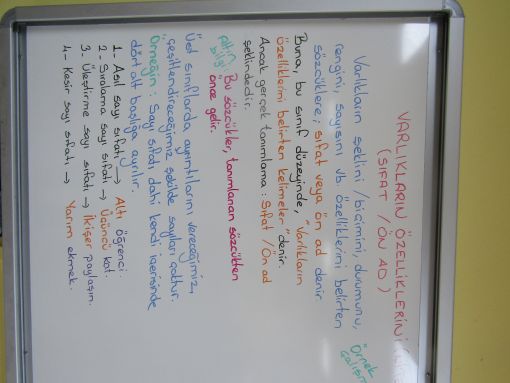 VARLIKLARIN ÖZELLİKLERİNİ
(SIFAT / ÖN AD)
Örnek
Varlıkların şeklini / biçimini, durumunu,
rengini, sayısını vb. özelliklerini belirten
sözcüklere; sıfat veya ön ad denir.
Buna, bu sınıf düzeyinde, "Varlıkların
özelliklerini belirten kelimeler" denir.
Ancak gerçek tanımlama: Sıfat / Ön ad
şeklindedir.
Altın bilgi
Bu sözcükler, tanımlanan sözcükten
önce gelir.
Üst sınıflarda ayrıntılarını vereceğimiz,
çeşitlendireceğimiz şekilde sayları çoktur.
Örneğin: Sayı sıfatı dahi kendi içerisinde
dört alt başlığa ayrılır.
1- Asıl sayı sıfatı → Altı öğrenci.
2- Sıralama sayı sıfatı → Üçüncü kat.
3- Üleştirme sayı sıfatı → İkişer paylaşın.
4- Kesir sayı sıfatı → Yarım ekmek.